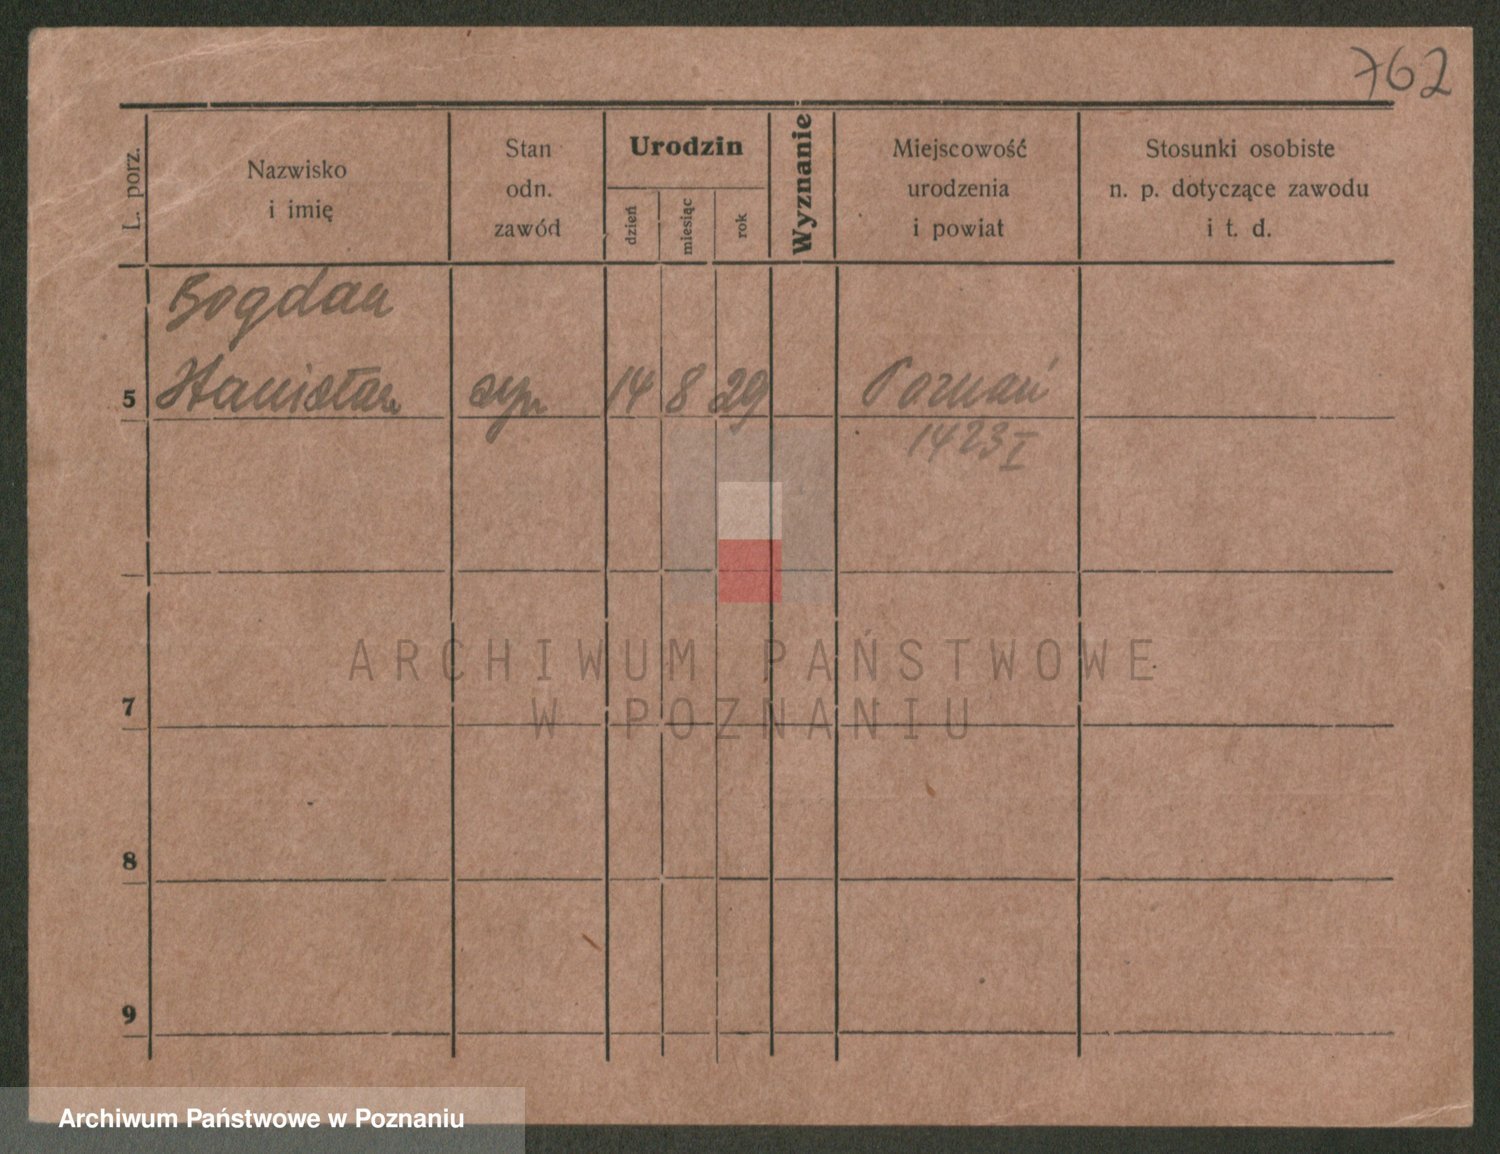 762
L. porz.
Nazwisko
i imię
Stan
odn.
zawód
Urodzin
dzień
miesiąc
rok
Wyznanie
Miejscowość
urodzenia
i powiat
Stosunki osobiste
n. p. dotyczące zawodu
i t. d.
Bogdan
5 Stanisław syn 14 8 29 Poznań
1423 I
7
8
9
ARCHIWUM PAŃSTWOWE
W POZNANIU
Archiwum Państwowe w Poznaniu